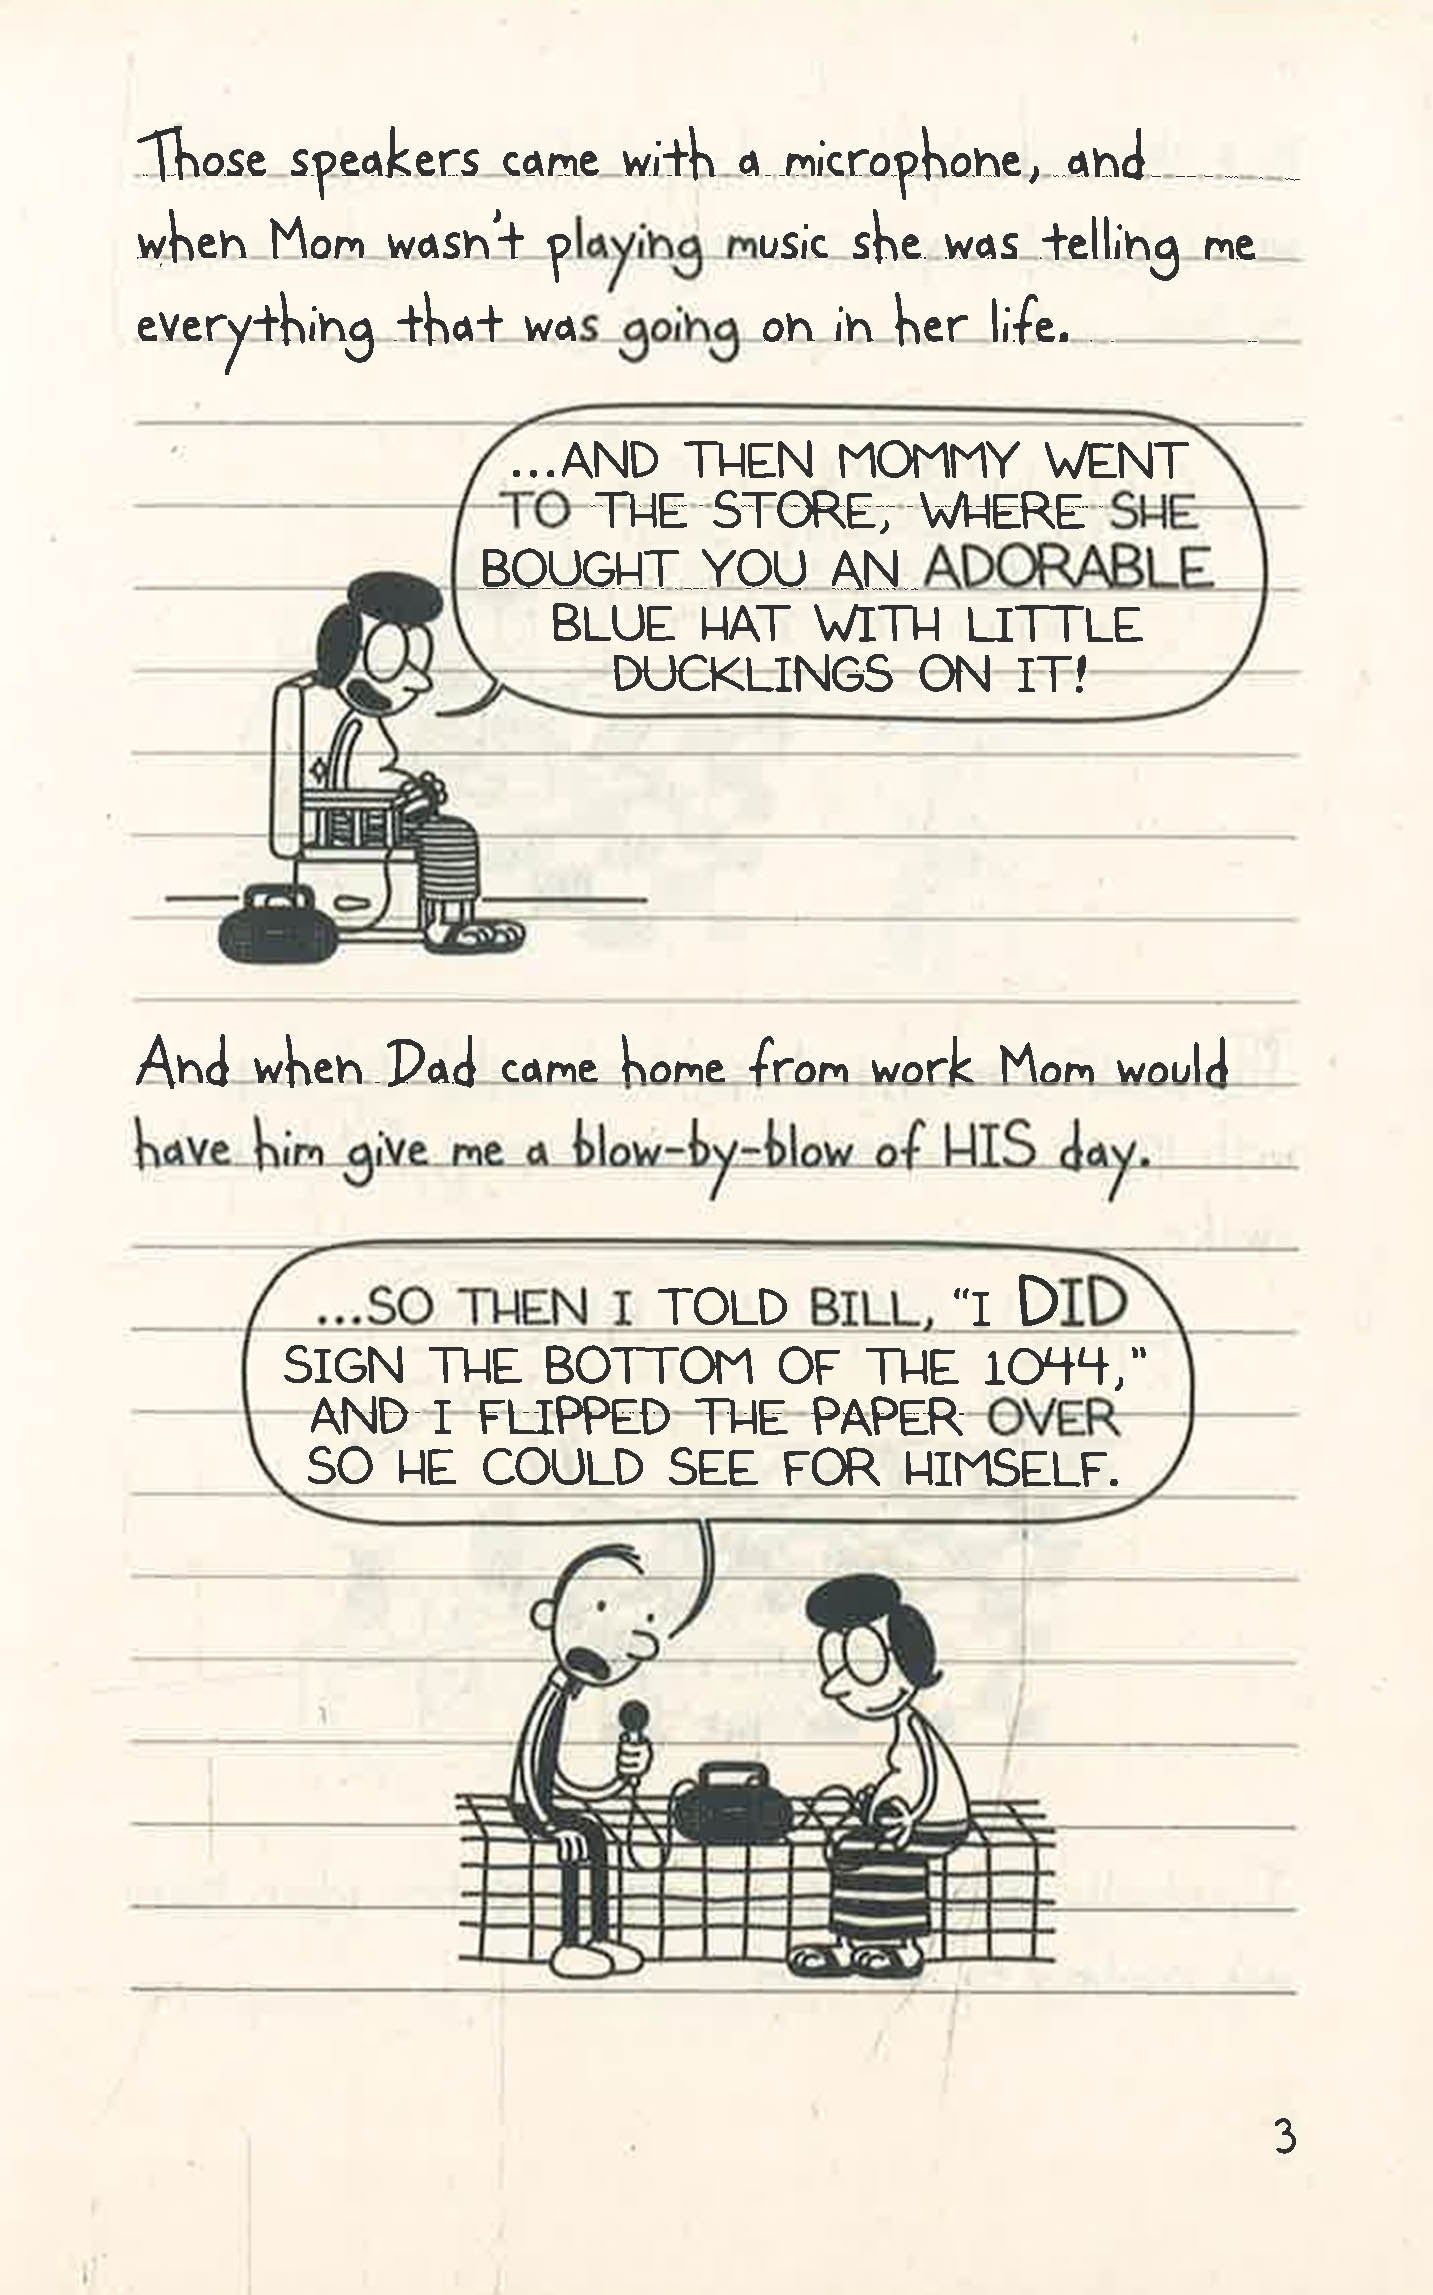 Those speakers came with a microphone, and
when Mom wasn't playing music she was telling me
everything that was going on in her life.
...AND THEN MOMMY WENT
TO THE STORE, WHERE SHE
BOUGHT YOU AN ADORABLE
BLUE HAT WITH LITTLE
DUCKLINGS ON IT!
And when Dad came home from work Mom would
have him give me a blow-by-blow of HIS day.
...SO THEN I TOLD BILL, "I DID
SIGN THE BOTTOM OF THE 1044,"
AND I FLIPPED THE PAPER OVER
SO HE COULD SEE FOR HIMSELF.
3